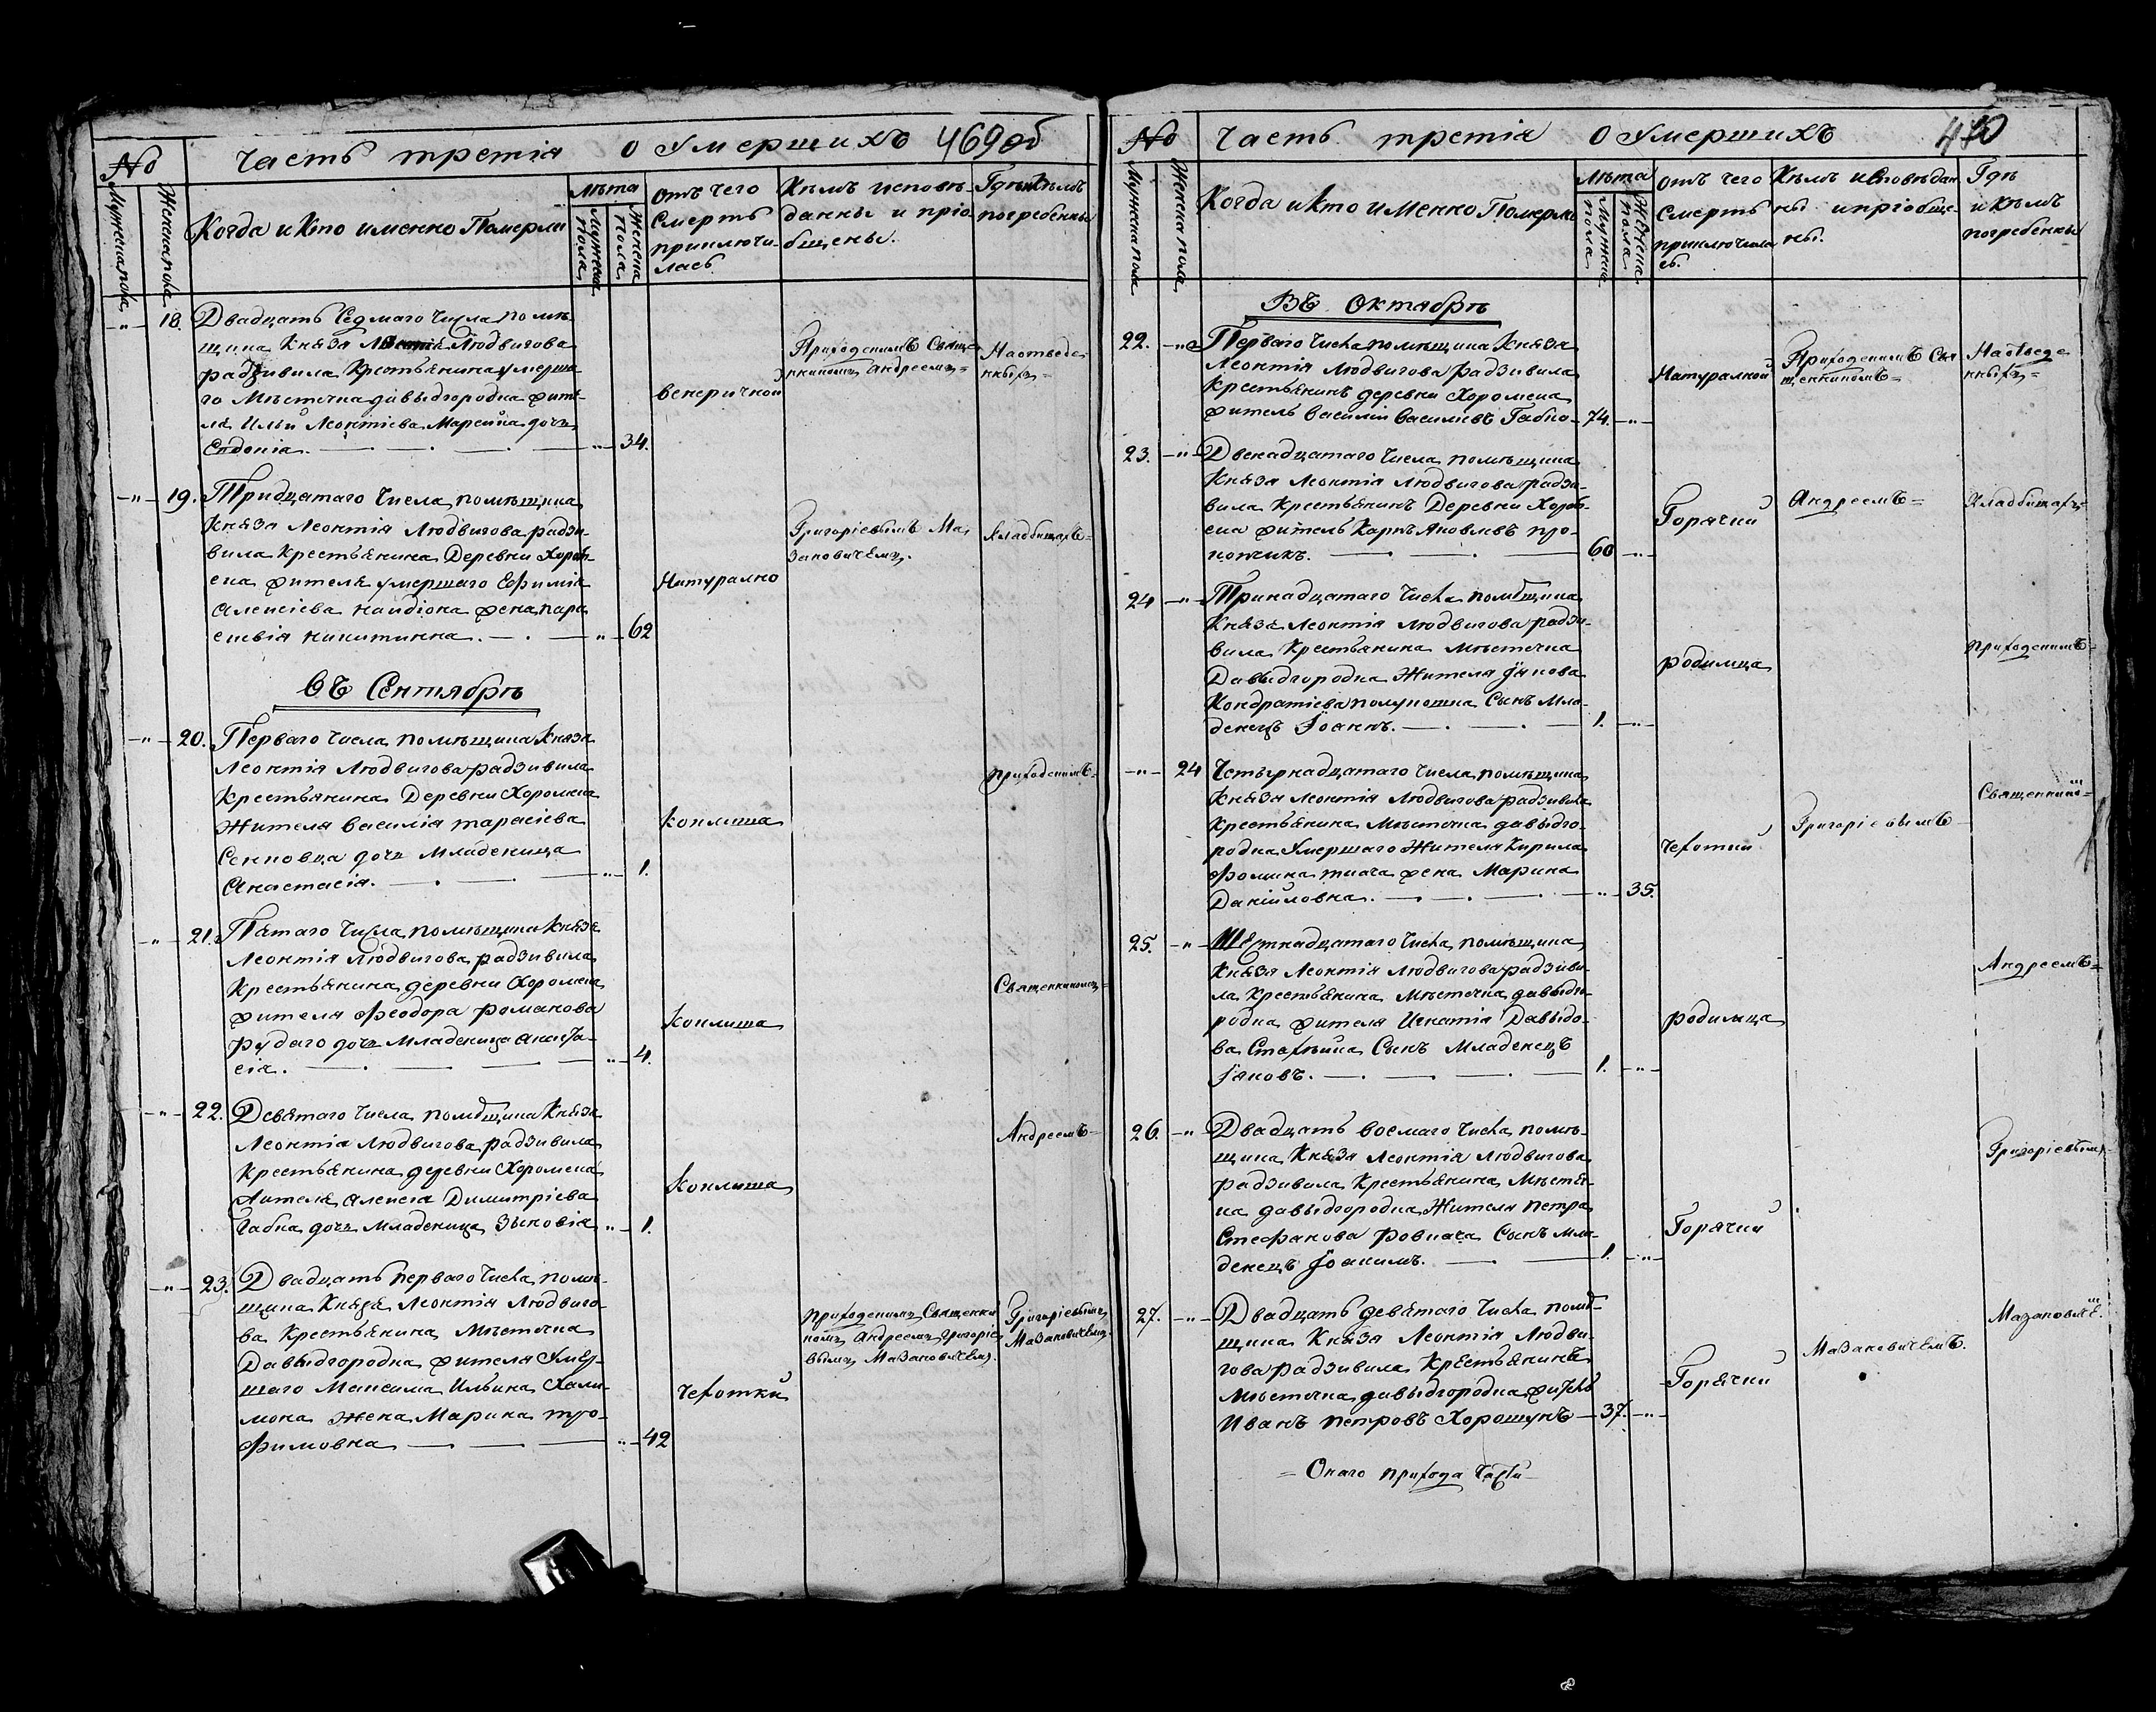 № Часть третія о Умершихъ 469 об
Мужеска пола
Женска пола
Когда и кто именно Померли
Лѣта
Мужеска пола
Женска пола
Отъ чего
Смерть
приключи-
лась
Кѣмъ исповѣ-
данны и пріо
бщены.
Гдѣ и Кѣмъ
погребенны
-"- 18. Двадцать Седмаго Числа помѣ-
щика Князя Людвигова
радзивила Крестьянина умерша
го Мѣстечка давыдгородка жите
ля Ильи Леонтіева дочь
Евдокія. -"- 34.
венеричкой
Приходскимъ Свящ=
нникомъ Андреемъ=
На отведе-
нныхъ=
-"- 19. Тридцатаго Числа помѣщика
Князя Леонтія Людвигова радзи-
вила Крестьянина Деревни Хором-
ска жителя умершаго Ефимія
Алексіева жена пара
скевія никитична. -"- 62
Натурално
Григоріевымъ Ма,
зановичемъ.
Кладбищахъ=
Въ Сентябрѣ
-"- 20. Перваго Числа помѣщика Князя
Леонтія Людвигова радзивила
Крестьянина Деревни Хоромска
Жителя василія тарасіева
Сенковца дочь Младеница
Анастасія. -"- 1.
Коклюша
приходскимъ=
-"- 21. Пятаго Числа помѣщика Князя
Леонтія Людвигова радзивила
Крестьянина деревни Хоромска
жителя Феодора романова
Рудаго дочь Младеница Анаста-
сія. -"- 4.
Коклюша
Священникомъ=
-"- 22. Девятаго Числа помѣщика Князя
Леонтія Людвигова радзивила
Крестьянина деревни Хоромска
жителя Алексея Димитріева
Габка дочь Младеница Зѣновія -"- 1.
Коклюша
Андреемъ=
-"- 23. Двадцать перваго Числа помѣ-
щика Князя Леонтія Людвиго-
ва Крестьянина Мѣстечка
Давыдгородка жителя Умер-
шаго Максима Ильина Хали-
мона Жена Марина тро-
фимовна -"- 42
Чехотки
приходскимъ Священни
комъ Андреемъ Григоріе
вымъ Мазановичемъ.
Григоріевымъ
Мазановичемъ.
№ Часть третія о Умершихъ 470
Мужеска пола
Женска пола
Когда и кто именно Померли
Лѣта
Мужеска пола
Женска пола
Отъ чего
Смерть
приключила
сь.
Кѣмъ исповѣдан
ны и пріобще-
ны.
Гдѣ
и Кѣмъ
погребенны
Въ Октябрѣ
22. -"- Перваго Числа помѣщика Князя
Леонтія Людвигова радзивила
Крестьянинъ деревни Хоромска
житель Василій Васильевъ Габко- 74. -"-
Натуралной
Приходскимъ Свя
щенникомъ=
На отведе
нныхъ=
23. -"- Двенадцатаго Числа помѣщика
Князя Леонтія Людвигова радзи-
вила Крестьянинъ Деревни Хором-
ска житель Карпъ Яковлевъ про-
копчикъ. 60 -"-
Горячки
Андреемъ=
Кладбищахъ=
24 -"- Тринадцатаго Числа помѣщика
Князя Леонтія Людвигова радзи-
вила Крестьянина Мѣстечка
Давыдгородка Жителя Іякова
Кондратіева полукошка Сынъ Мла-
денецъ Іоаннъ. 1. -"-
родимца
приходскимъ=
-"- 24 Четырнадцатаго Числа помѣщика
Князя Леонтія Людвигова радзивила
Крестьянина Мѣстечка давыдго-
родка Умершаго Жителя Кирила
Фомина ткача жена Марина
Данійловна. -"- 35.
Чехотки
Григоріевымъ
Священникомъ=
25. -"- Шестнадцатаго Числа помѣщика
Князя Леонтія Людвигова радзиви-
ла Крестьянина Мѣстечка давыдго-
родка жителя Игнатія Давыдо-
ва Сынъ Младенецъ
Іяковъ. 1. -"-
родимца
Андреемъ=
26. -"- Двадцать восмаго Числа помѣ-
щика Князя Леонтія Людвигова
радзивила Крестьянина Мѣстеч-
ка давыдгородка Жителя петра
Стефанова Ровкача Сынъ Мла-
денецъ Іоакимъ. 1. -"-
Горячки
Григоріевымъ
27. -"- Двадцать девятаго Числа помѣ-
щика Князя Леонтія Людви-
гова радзивила Крестьянинъ
Мѣстечка давыдгородка житель
Иванъ петровъ Хорошунъ - 37. -"-
Горячки
Мазановичемъ.
Мазановичемъ.
= Онаго прихода Части